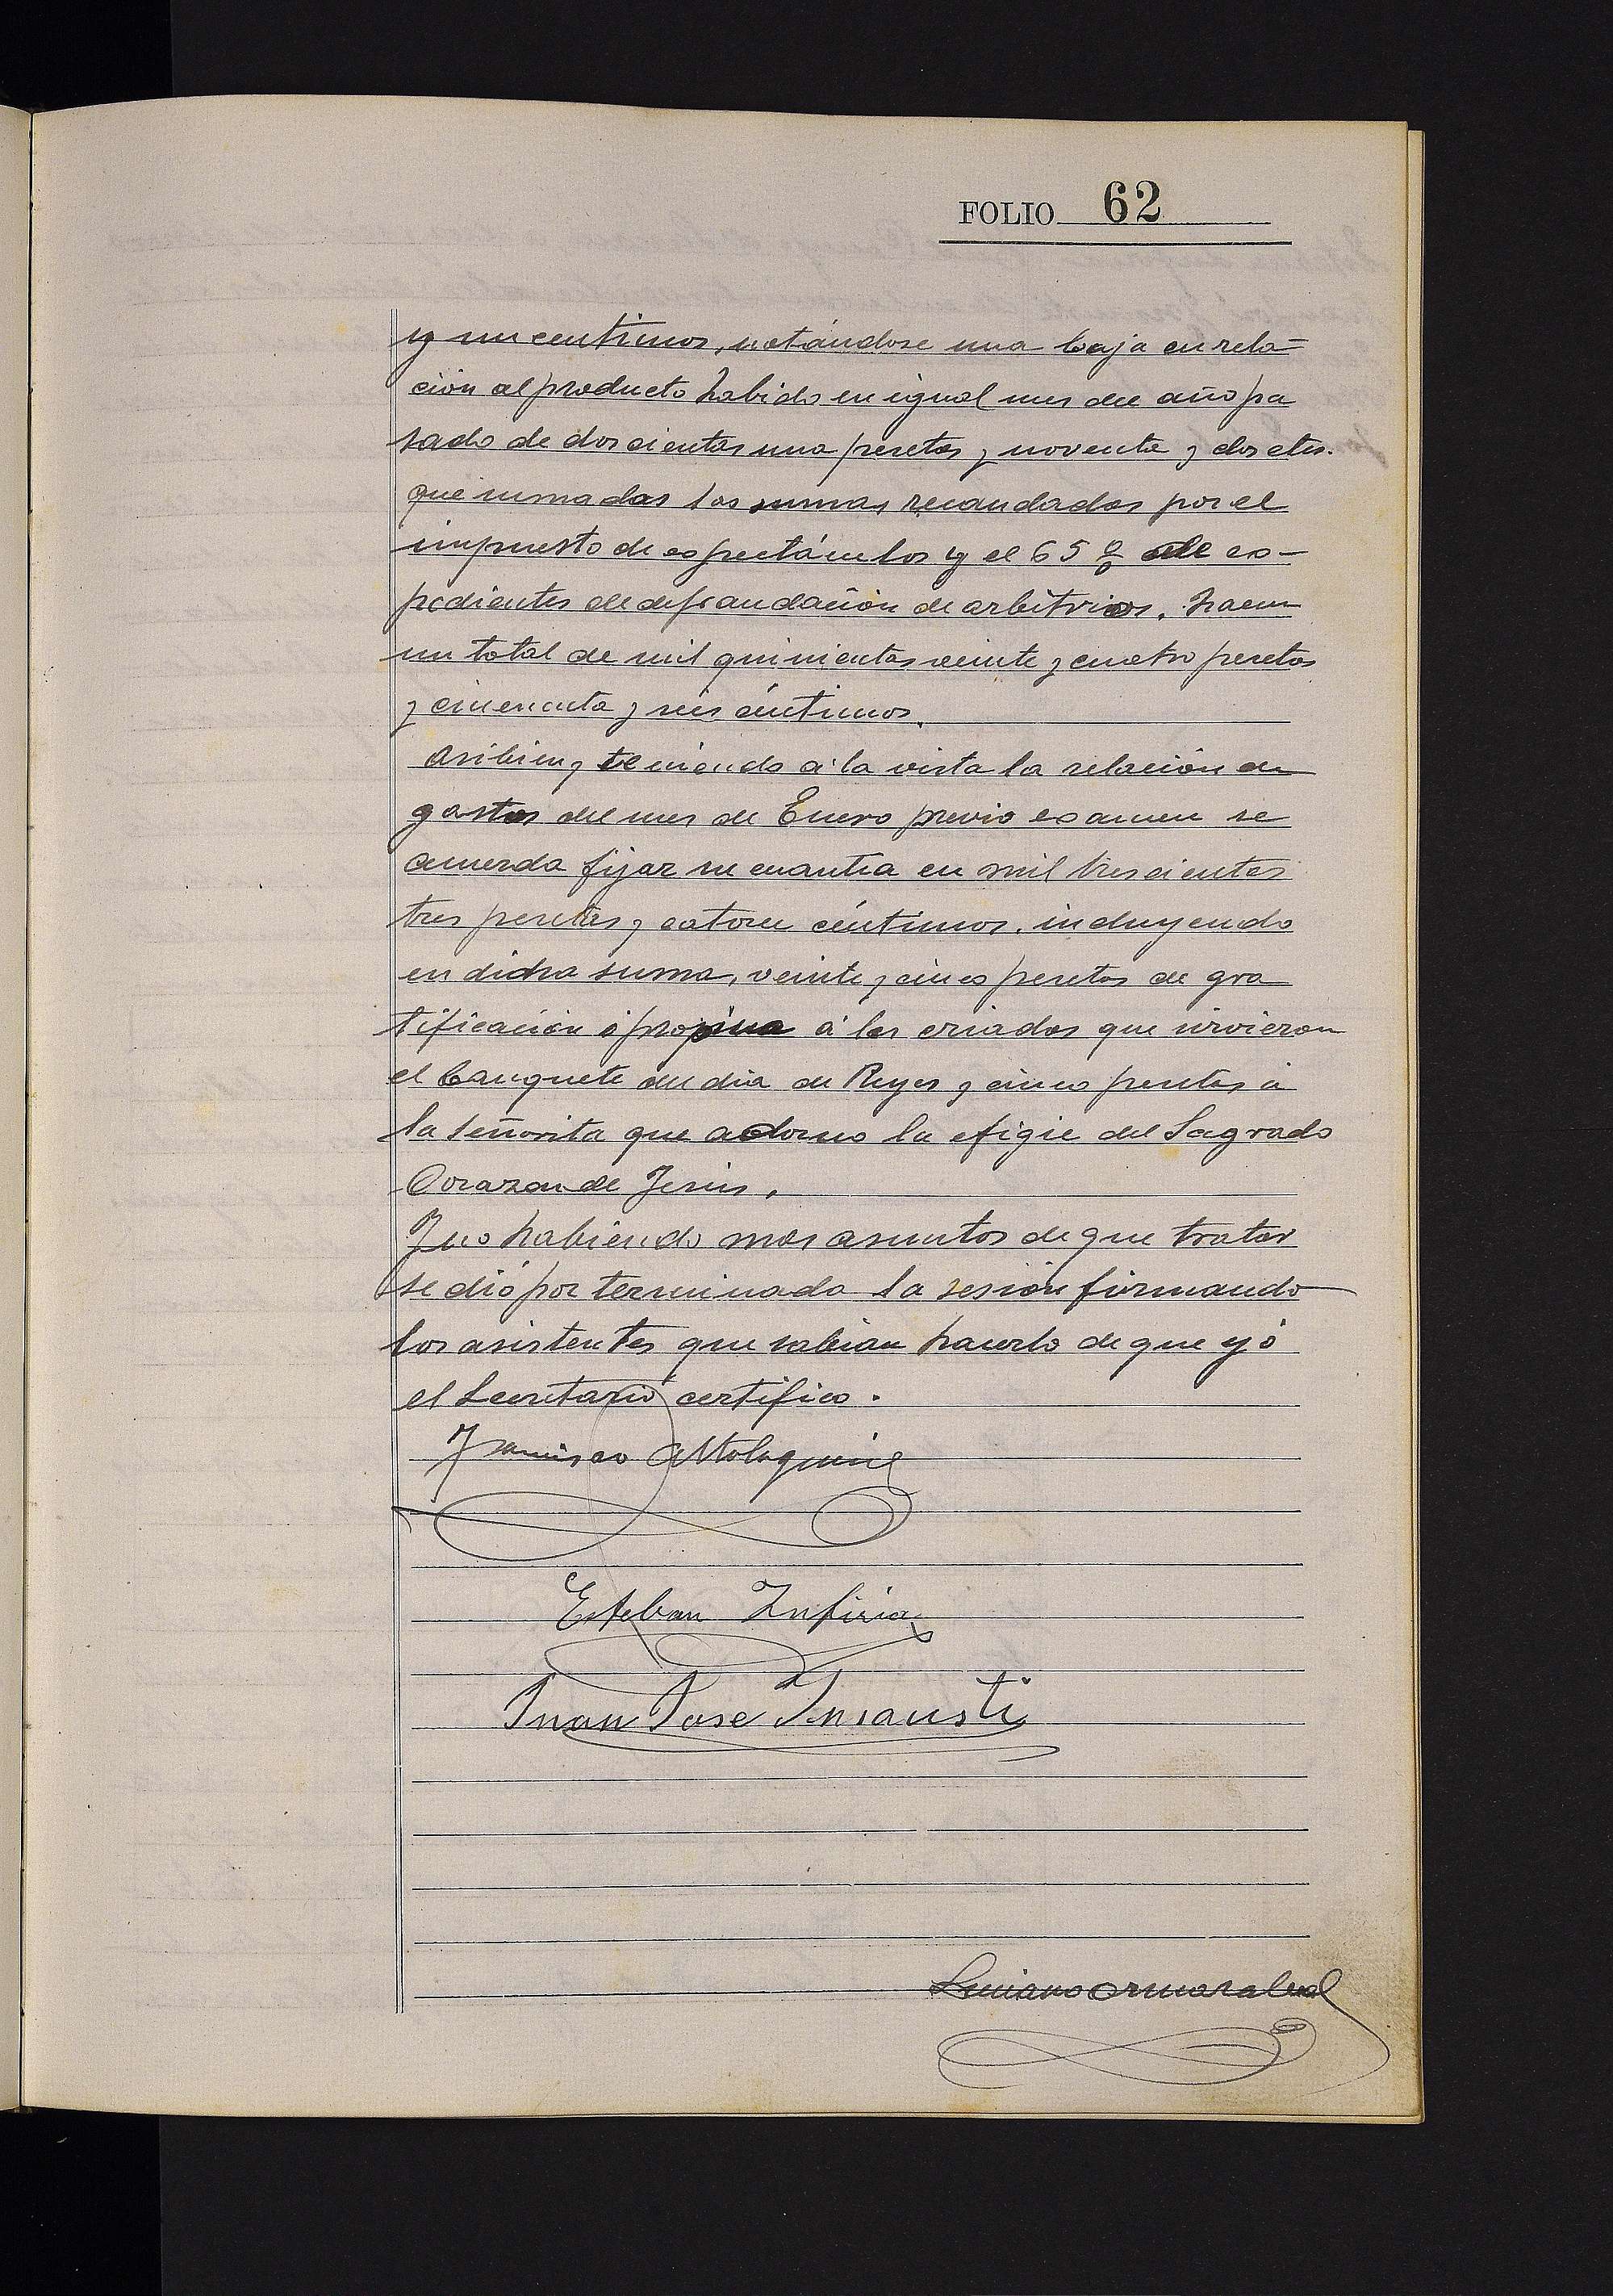 FOLIO 62
y un centimos, notándose una baja en rela-
ción al producto habido en igual mes del año pa
sado de doscientas una pesetas y noventa y dos cts.
que sumadas las sumas recaudadas por el
impuesto de espectáculos y el 65 % de ex-
pedientes de defraudación de arbitrios, hacen
un total de mil quinientas veinte y cuatro pesetas
y cincuenta y seis céntimos.
Asibien y teniendo á la vista la relación de
gastos del mes de Enero previo examen se
acuerda fijar su cuantia en mil trescientas
tres pesetas y catorce céntimos, incluyendo
en dicha suma, veinte y cinco pesetas de gra
tificación ó propina á los criados que sirvieron
el banquete del dia de Reyes y cinco pesetas á
la Señorita que adorno la efigie del Sagrado
Corazon de Jesús.
Y no habiendo mas asuntos de que tratar
se dió por terminada la sesión firmando
los asistentes que sabian hacerlo de que yó
el Secretario certifico.
Francisco Altolaguirre
Esteban Zufiria
Juan Jose Insausti
Luciano Ormazabal